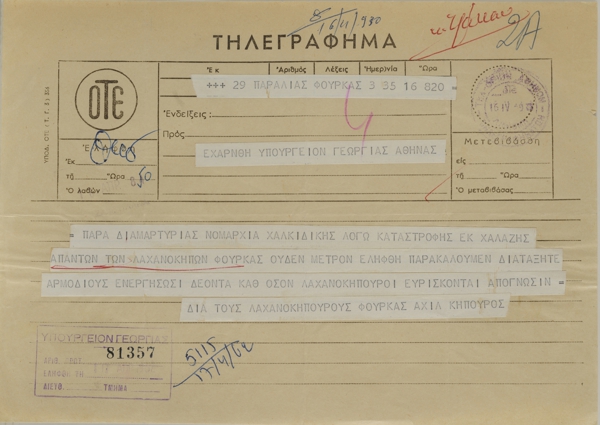 8
16/4/980
2Α
ΤΗΛΕΓΡΑΦΗΜΑ
Ἐκ Ἀριθμός Λέξεις Ἡμερ)νία Ὥρα
+++ 29 ΠΑΡΑΛΙΑΣ ΦΟΥΡΚΑΣ 3 35 16 820 =
ΟΤΕ
Ἐνδείξεις:
Πρός
ΕΧΑΡΝΘΗ ΥΠΟΥΡΓΕΙΟΝ ΓΕΩΡΓΙΑΣ ΑΘΗΝΑΣ
Ἐκ
τῇ Ὥρα 50
Ὁ λαβών
Μετεβιβάσθη
εἰς
τῇ Ὥρα
Ὁ μεταβιβάσας
= ΠΑΡΑ ΔΙΑΜΑΡΤΥΡΙΑΣ ΝΟΜΑΡΧΙΑ ΧΑΛΚΙΔΙΚΗΣ ΛΟΓΩ ΚΑΤΑΣΤΡΟΦΗΣ ΕΚ ΧΑΛΑΖΗΣ
ΑΠΑΝΤΩΝ ΤΩΝ ΛΑΧΑΝΟΚΗΠΩΝ ΦΟΥΡΚΑΣ ΟΥΔΕΝ ΜΕΤΡΟΝ ΕΛΗΦΘΗ ΠΑΡΑΚΑΛΟΥΜΕΝ ΔΙΑΤΑΞΗΤΕ
ΑΡΜΟΔΙΟΥΣ ΕΝΕΡΓΗΣΩΣΙ ΔΕΟΝΤΑ ΚΑΘ ΟΣΟΝ ΛΑΧΑΝΟΚΗΠΟΥΡΟΙ ΕΥΡΙΣΚΟΝΤΑΙ ΑΠΟΓΝΩΣΙΝ =
ΔΙΑ ΤΟΥΣ ΛΑΧΑΝΟΚΗΠΟΥΡΟΥΣ ΦΟΥΡΚΑΣ ΑΧΙΑ ΚΗΠΟΥΡΟΣ
ΥΠΟΥΡΓΕΙΟΝ ΓΕΩΡΓΙΑΣ
81357
ΤΜΗΜΑ
5115
17/4/62